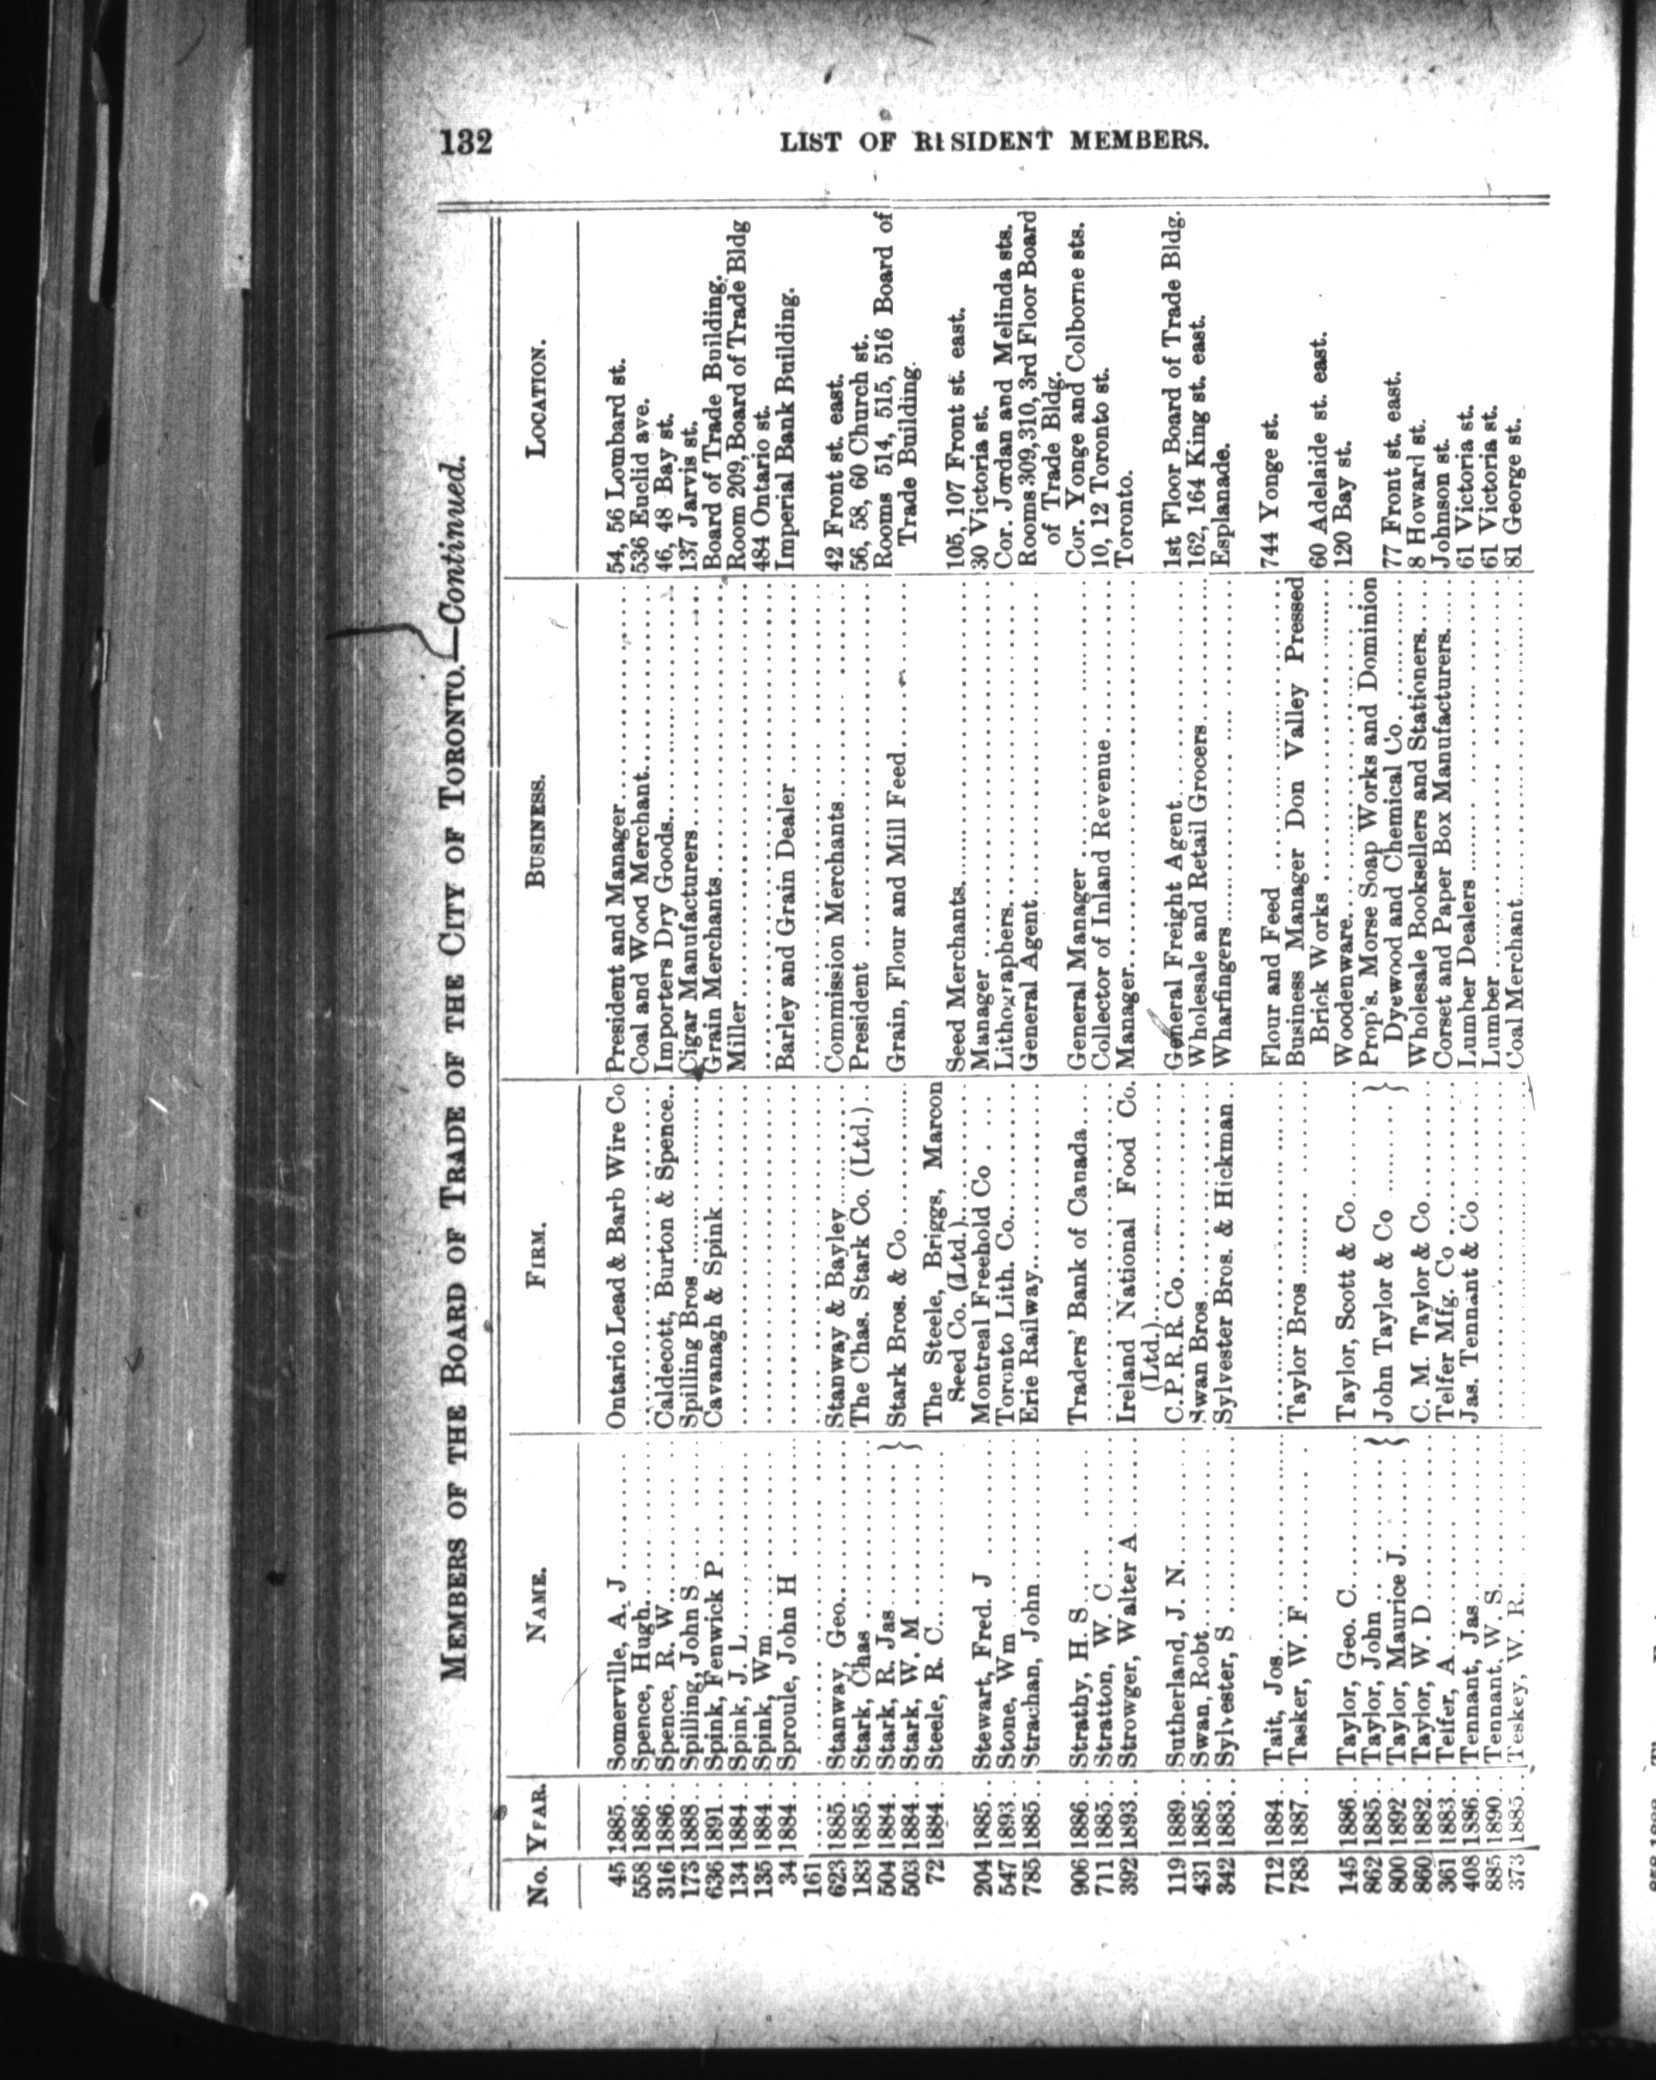 132
LIST OF RESIDENT MEMBERS.
MEMBERS OF THE BOARD OF TRADE OF THE CITY OF TORONTO.—Continued.
No. YEAR. NAME. FIRM. BUSINESS. LOCATION.
45 1885.. Somerville, A. J. Ontario Lead & Barb Wire Co President and Manager 54, 56 Lombard st.
558 1886.. Spence, Hugh. Coal and Wood Merchant. 536 Euclid ave.
316 1886.. Spence, R. W. Caldecott, Burton & Spence.. Importers Dry Goods. 46, 48 Bay st.
173 1888.. Spilling, John S Spilling Bros Cigar Manufacturers 137 Jarvis st.
636 1891.. Spink, Fenwick P Cavanagh & Spink Grain Merchants Board of Trade Building.
134 1884.. Spink, J. L. Miller Room 209, Board of Trade Bldg
135 1884.. Spink, Wm. 484 Ontario st.
34 1884.. Sproule, John H Barley and Grain Dealer Imperial Bank Building.
161
623 1885.. Stanway, Geo. Stanway & Bayley Commission Merchants 42 Front st. east.
183 1885.. Stark, Chas The Chas. Stark Co. (Ltd.) .. President 56, 58, 60 Church st.
504 1884.. Stark, R. Jas } Stark Bros. & Co Grain, Flour and Mill Feed Rooms 514, 515, 516 Board of
503 1884.. Stark, W. M } Trade Building.
72 1884.. Steele, R. C. The Steele, Briggs, Marcon
Seed Co. (Ltd.) Seed Merchants. 105, 107 Front st. east.
204 1885.. Stewart, Fred. J Montreal Freehold Co Manager 30 Victoria st.
547 1893.. Stone, Wm Toronto Lith. Co. Lithographers. Cor. Jordan and Melinda sts.
785 1885.. Strachan, John Erie Railway. General Agent Rooms 309, 310, 3rd Floor Board
of Trade Bldg.
906 1886.. Strathy, H. S Traders' Bank of Canada General Manager Cor. Yonge and Colborne sts.
711 1885.. Stratton, W. C Collector of Inland Revenue 10, 12 Toronto st.
392 1893.. Strowger, Walter A Ireland National Food Co. Manager. Toronto.
(Ltd.)
119 1889.. Sutherland, J. N. C. P. R. R. Co. General Freight Agent 1st Floor Board of Trade Bldg.
431 1885.. Swan, Robt. Swan Bros. Wholesale and Retail Grocers 162, 164 King st. east.
342 1883.. Sylvester, S Sylvester Bros. & Hickman.. Wharfingers Esplanade.
712 1884.. Tait, Jos. Flour and Feed 744 Yonge st.
783 1887.. Tasker, W. F Taylor Bros Business Manager Don Valley Pressed
Brick Works 60 Adelaide st. east.
145 1886.. Taylor, Geo. C. Taylor, Scott & Co Woodenware. 120 Bay st.
862 1885.. Taylor, John } John Taylor & Co } Prop's. Morse Soap Works and Dominion
800 1892.. Taylor, Maurice J. } } Dyewood and Chemical Co 77 Front st. east.
860 1882.. Taylor, W. D C. M. Taylor & Co. Wholesale Booksellers and Stationers. 8 Howard st.
361 1883.. Telfer, A Telfer Mfg. Co Corset and Paper Box Manufacturers. Johnson st.
408 1886.. Tennant, Jas Jas. Tennant & Co Lumber Dealers 61 Victoria st.
885 1890.. Tennant, W. S. Lumber 61 Victoria st.
373 1885.. Teskey, W. R. Coal Merchant. 81 George st.